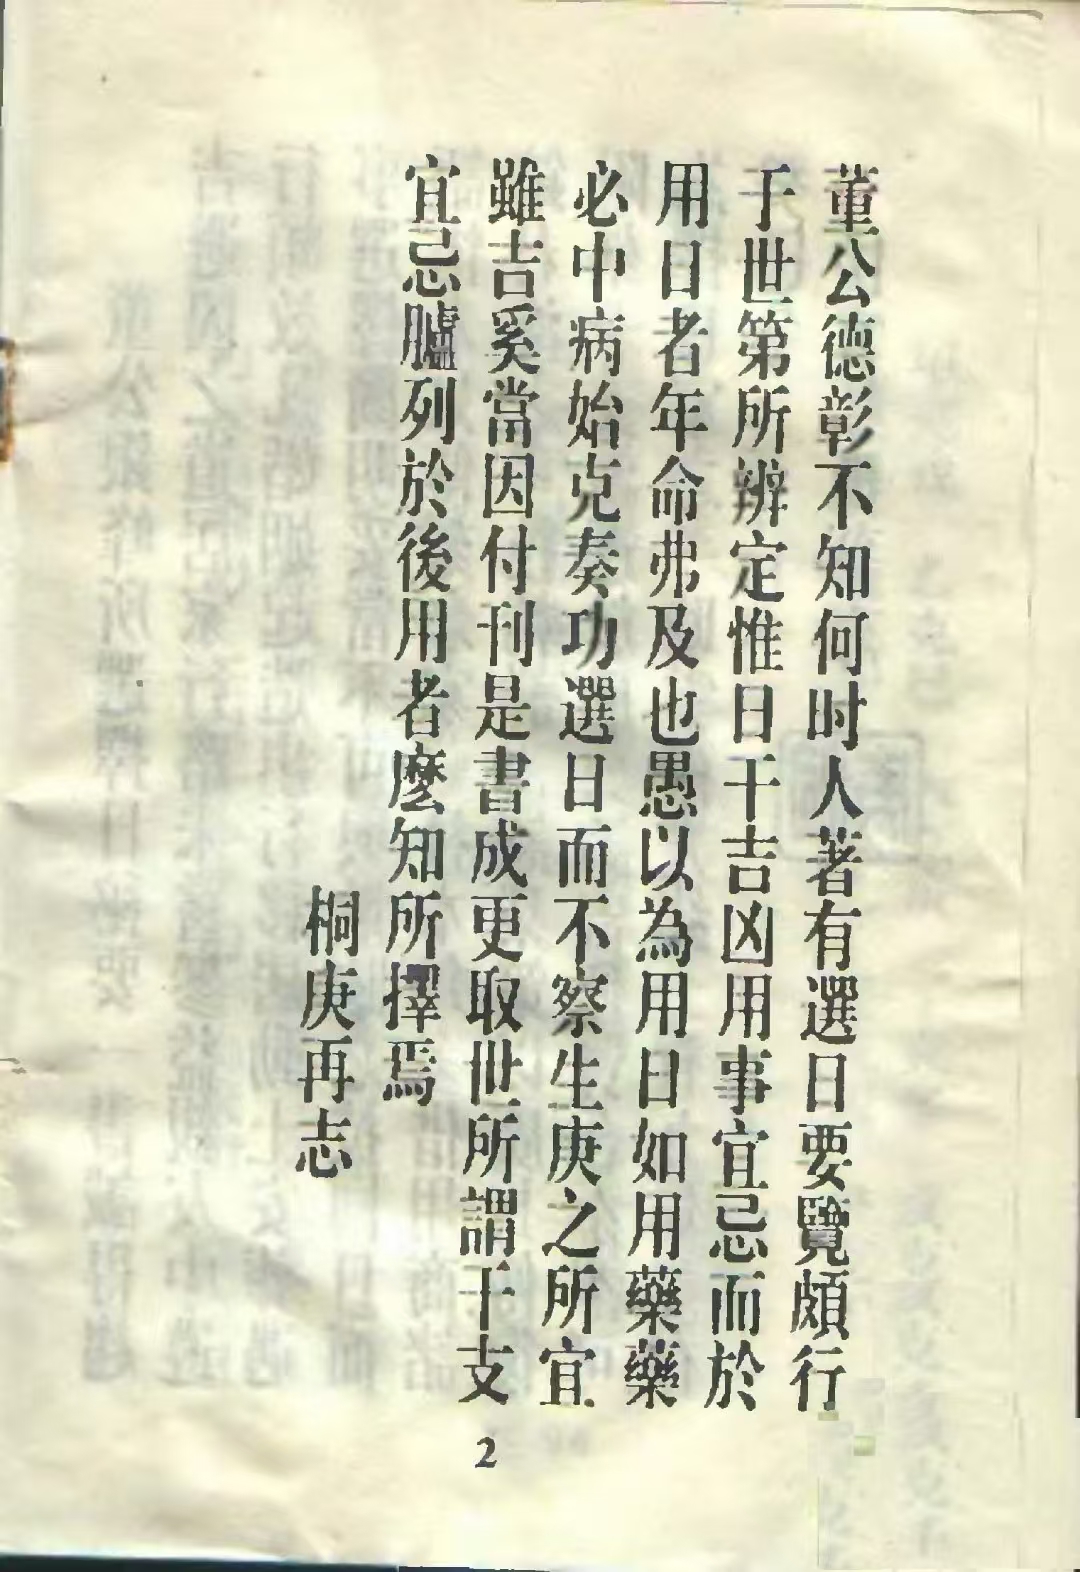 董公德彰不知何时人著有選日要覽頗行
于世第所辨定惟日干吉凶用事宜忌而於
用日者年命弗及也愚以為用日如用藥藥
必中病始克奏功選日而不察生庚之所宜
雖吉奚當因付刊是書成更取世所謂干支
宜忌臚列於後用者麼知所擇焉
桐庚再志
2